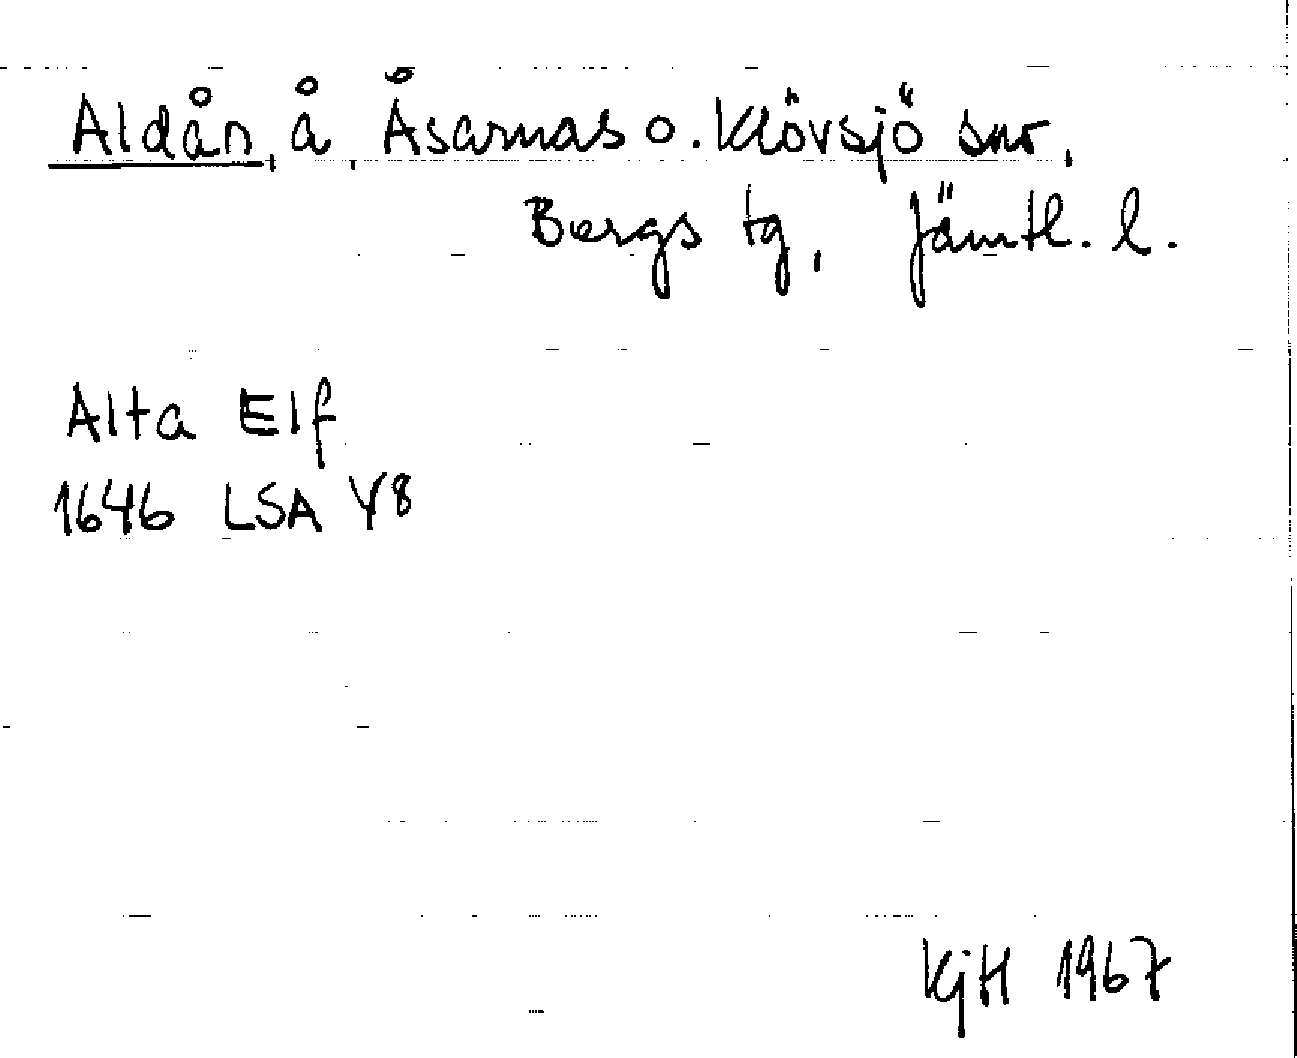 Aldån, å, Åsarnas o. Klövsjö snr,
Bergs tg, Jämtl. l.
Alta Elf
1646 LSA Y8
KjH 1967